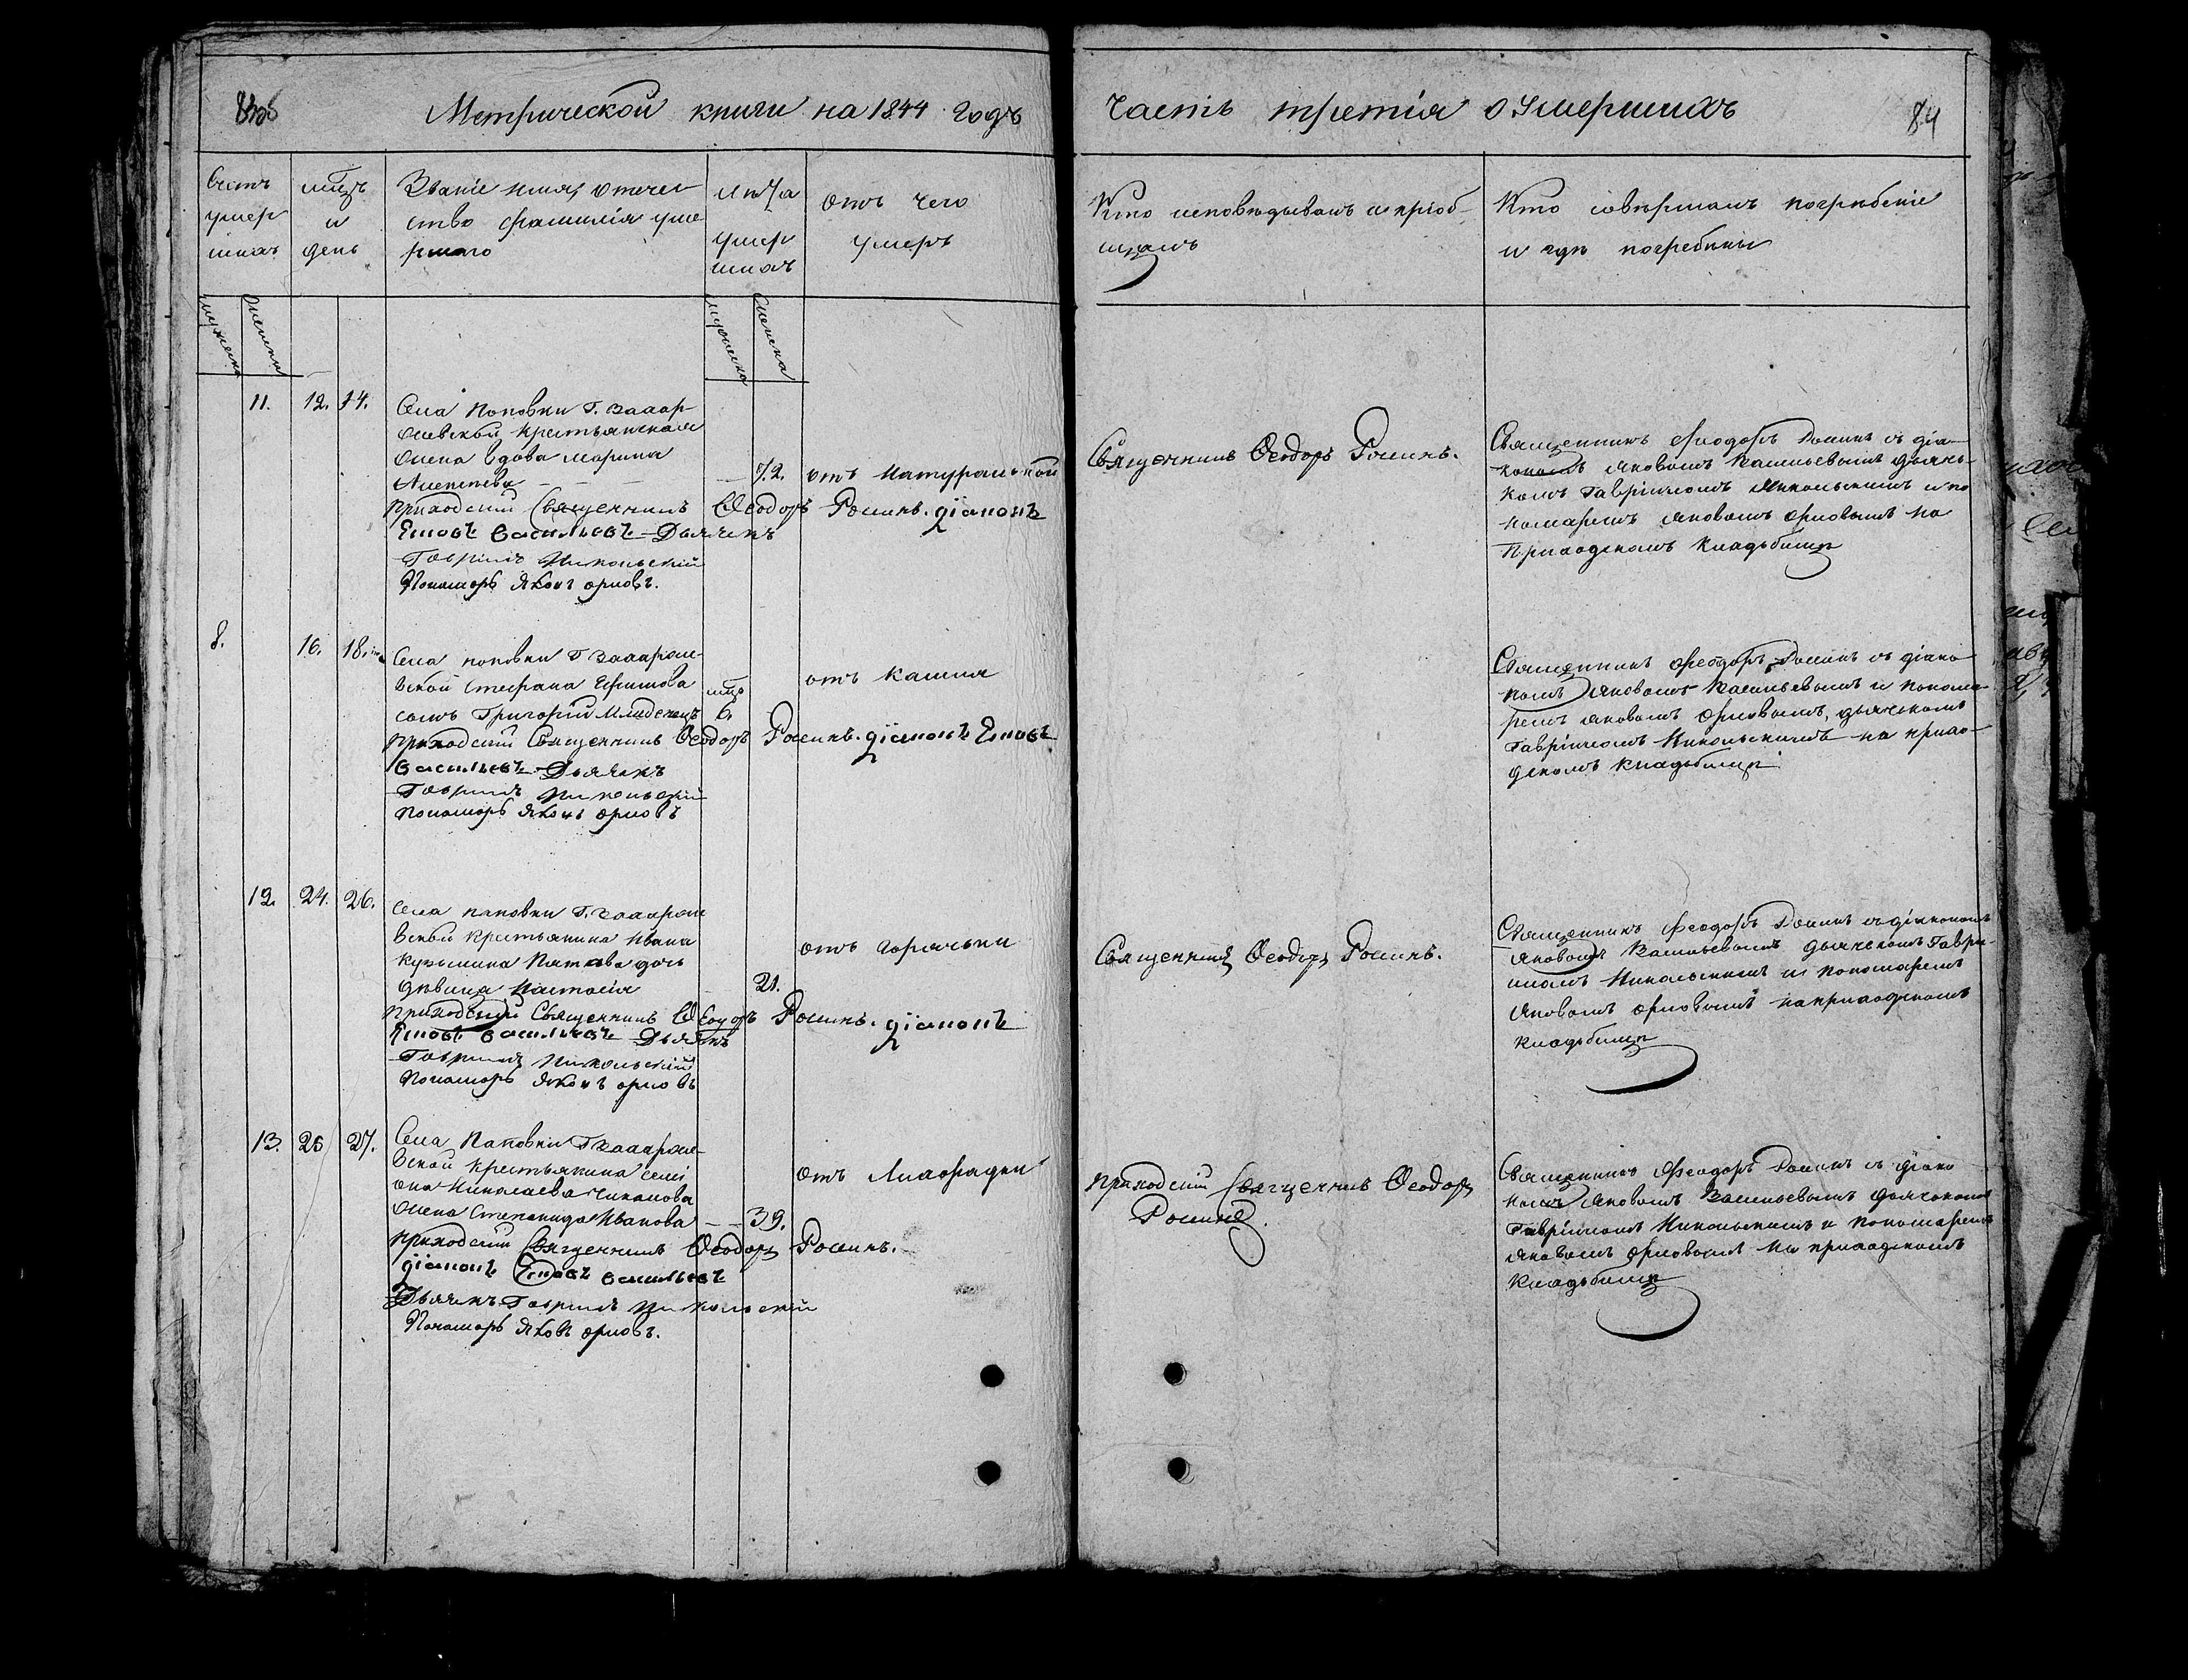 Метрической книги на 1844 годъ
часть третія о Умершихъ
84
Счетъ умер шихъ
мцъ и день
Званіе имя, отчес
ство фамилія уме
ршаго
лѣта умер шихъ
отъ чего
умеръ
Кто исповѣдывалъ и пріоб-
щалъ
Кто совершалъ погребеніе
и гдѣ погребены
мужеска
женска
мужеска
женска
11. 12. 14.
Села Поповки Г.
крестьянская
жена вдова Марина
72. отъ Натуральной
приходскій Священникъ Ѳеодоръ Роминъ. діаконъ
Іяковъ Васильевъ Дьячекъ
Гавріилъ Никольскій
Пономарь Яковъ Орловъ.
Священникъ Ѳеодоръ Роминъ.
Священникъ Феодоръ Роминъ съ діа-
кономъ Яковомъ Васильевымъ дьяч-
комъ Гавріиломъ Никольскимъ и по
номаремъ Яковомъ Орловымъ на
Приходскомъ кладьбищѣ
8. 16. 18.
Села поповки Г
Стефана Ефимова
сынъ Григорій Младенецъ 6.
отъ кашля
приходскій Священникъ Ѳеодоръ Роминъ. діаконъ Іяковъ
Васильевъ Дьячекъ
Гавріилъ Никольскій
Пономарь Яковъ Орловъ
Священникъ Феодоръ Роминъ съ діако
номъ Яковомъ Васильевымъ и понома-
ремъ Яковомъ Орловымъ, дьячкомъ
Гавріиломъ Никольскимъ на прихо-
дскомъ кладьбищѣ
12. 24. 26.
Села паповки Г.
крестьянина Ивана
Кузьмина дочь
дѣвица Настасія 21.
отъ горячьки
приходскій Священникъ Ѳеодоръ Роминъ. діаконъ
Іяковъ Васильевъ Дьячекъ
Гавріилъ Никольскій
Пономарь Яковъ Орловъ
Священникъ Ѳеодоръ Роминъ.
Священникъ Феодоръ Роминъ съ діакономъ
Яковомъ Васильевымъ дьячкомъ Гаври-
иломъ Никольскимъ и пономаремъ
Яковомъ Орловымъ на приходскомъ
кладьбищѣ
13. 25 27.
Села Паповки Г
крестьянина Семі
она Николаева
жена Степанида Иванова 39.
отъ Лихорадки
приходскій Священникъ Ѳеодоръ Роминъ.
діаконъ Іяковъ Васильевъ
Дьячекъ Гавріилъ Никольскій
Пономарь Яковъ Орловъ.
приходскій Священникъ Ѳеодоръ
Роминъ.
Священникъ Феодоръ Роминъ съ діако
номъ Яковомъ Васильевымъ дьячкомъ
Гавріиломъ Никольскимъ и пономаремъ
Яковомъ Орловымъ на приходскомъ
кладьбищѣ